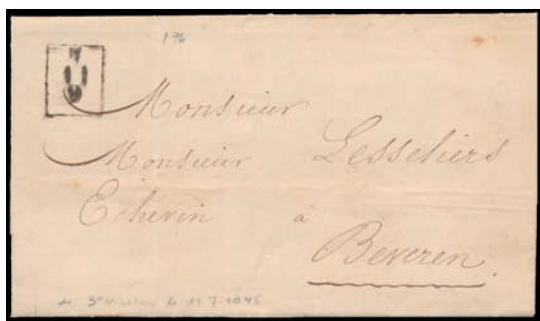 176
Monsieur
Monsieur Lesseliers
Echevin à
Beveren.
de St Nicolas le 11.7.1845